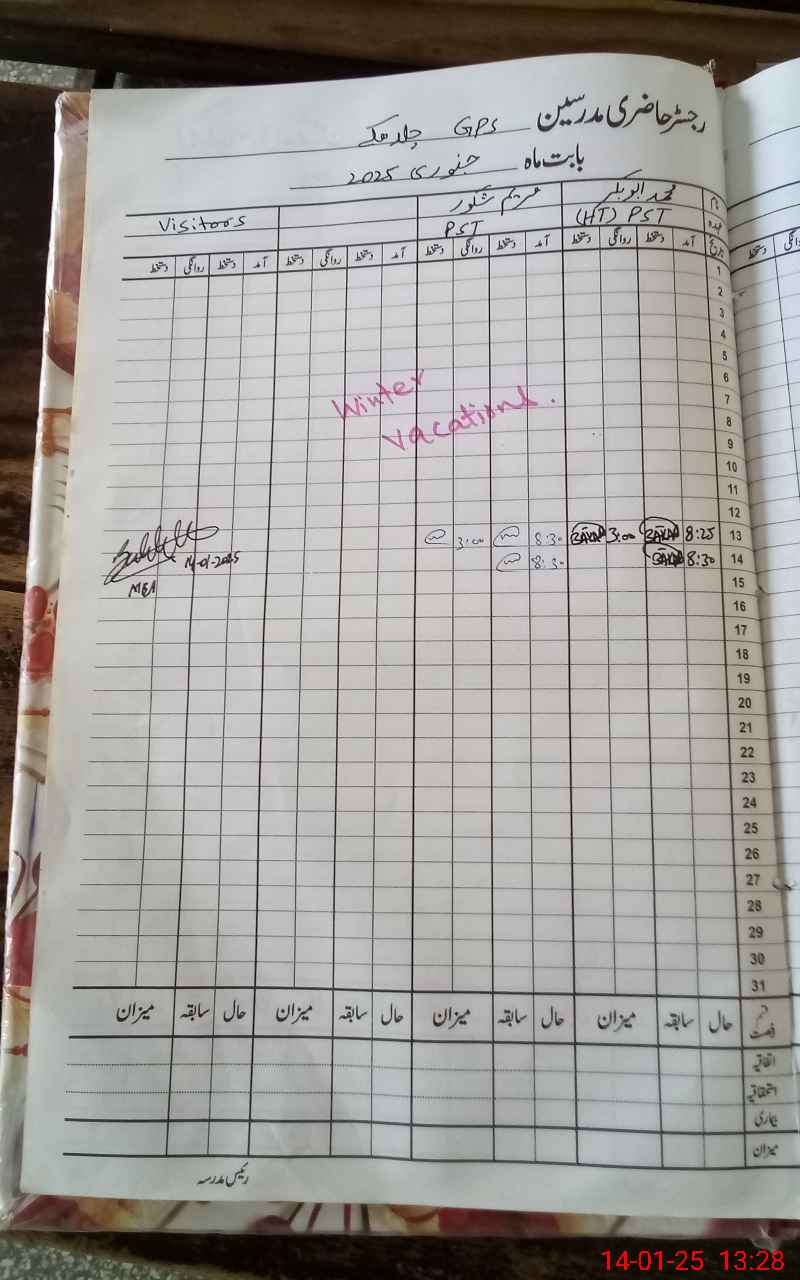 رجسٹر حاضری مدرسین GPS جلد مکے
بابت ماہ جنوری 2025
نام محمد ابوبکر مریم شکور Visitors
عہدہ (HT) PST PST
تاریخ آمد دستخط روانگی دستخط آمد دستخط روانگی دستخط آمد دستخط روانگی دستخط آمد دستخط روانگی دستخط
1
2
3
4
5
6
7
8
9
10
11
12
Winter
vacations.
13 8:25 BAKAR 3:00 BAKAR 8:30 3:00
14 8:30 BAKAR 8:30 14-01-2025
MEA
15
16
17
18
19
20
21
22
23
24
25
26
27
28
29
30
31
قسم رخصت حال سابقہ میزان حال سابقہ میزان حال سابقہ میزان حال سابقہ میزان
اتفاقیہ
استحقاقیہ
بیماری
میزان
رئیس مدرسہ
دستخط
14-01-25 13:28